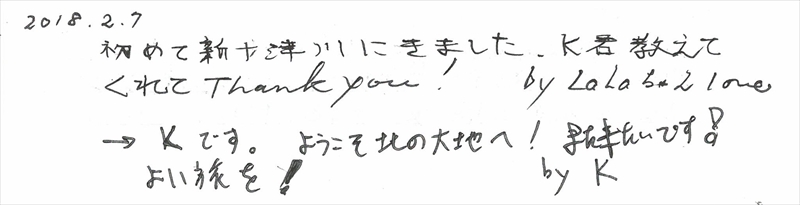 2018.2.7
初めて新十津川にきました、K君教えて
くれてThank you! by LaLaちゃん love
→ Kです。ようこそ北の大地へ! また来たいです!
よい旅を! by K